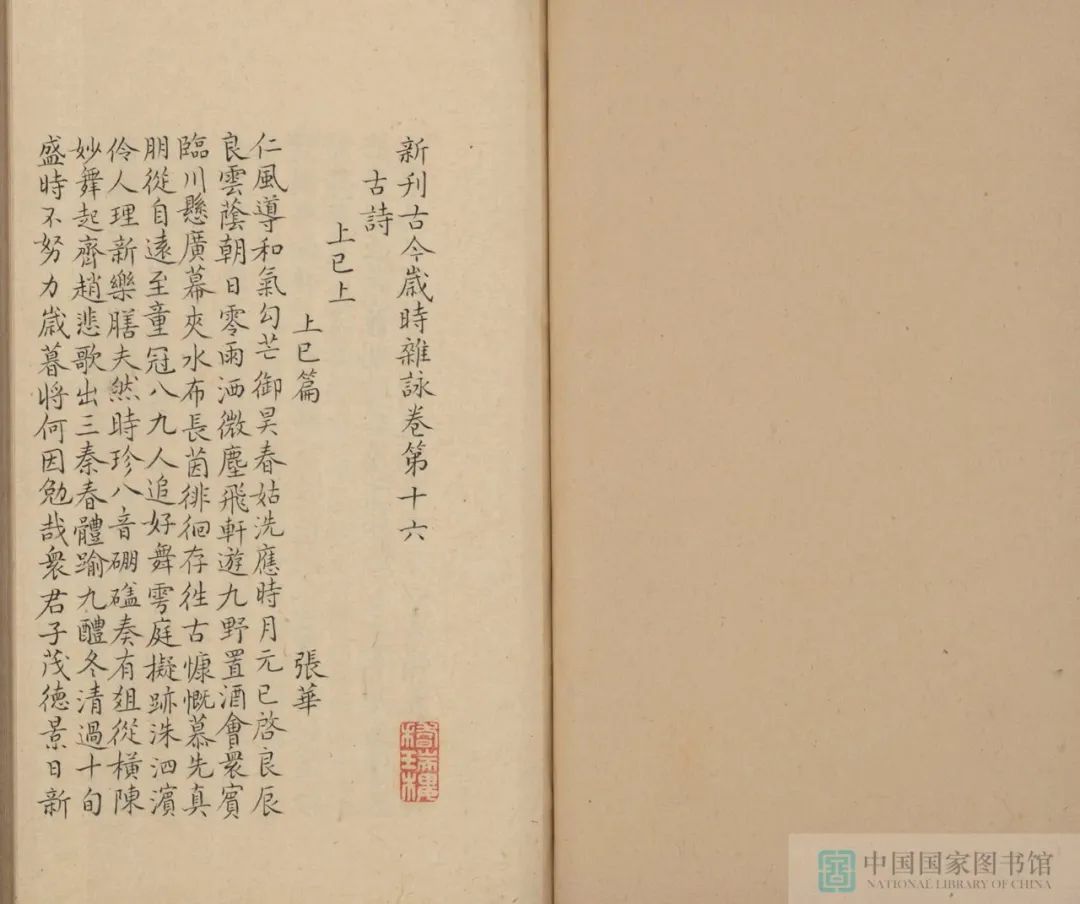 新刊古今歳時雜詠卷第十六
古詩
上巳上
上巳篇 張華
仁風導和氣勾芒御昊春姑洗應時月元巳啓良辰
良雲蔭朝日零雨洒微塵飛軒遊九野置酒會衆賓
臨川懸廣幕夾水布長茵徘徊存徃古慷慨慕先真
朋從自遠至童冠八九人追好舞雩庭擬跡洙泗濱
伶人理新樂膳夫然時珍八音硼磕奏有爼從橫陳
妙舞起齊趙悲歌出三秦春體踰九醴冬清過十旬
盛時不努力歳暮將何因勉哉衆君子茂德景日新
中国国家图书馆
NATIONAL LIBRARY OF CHINA